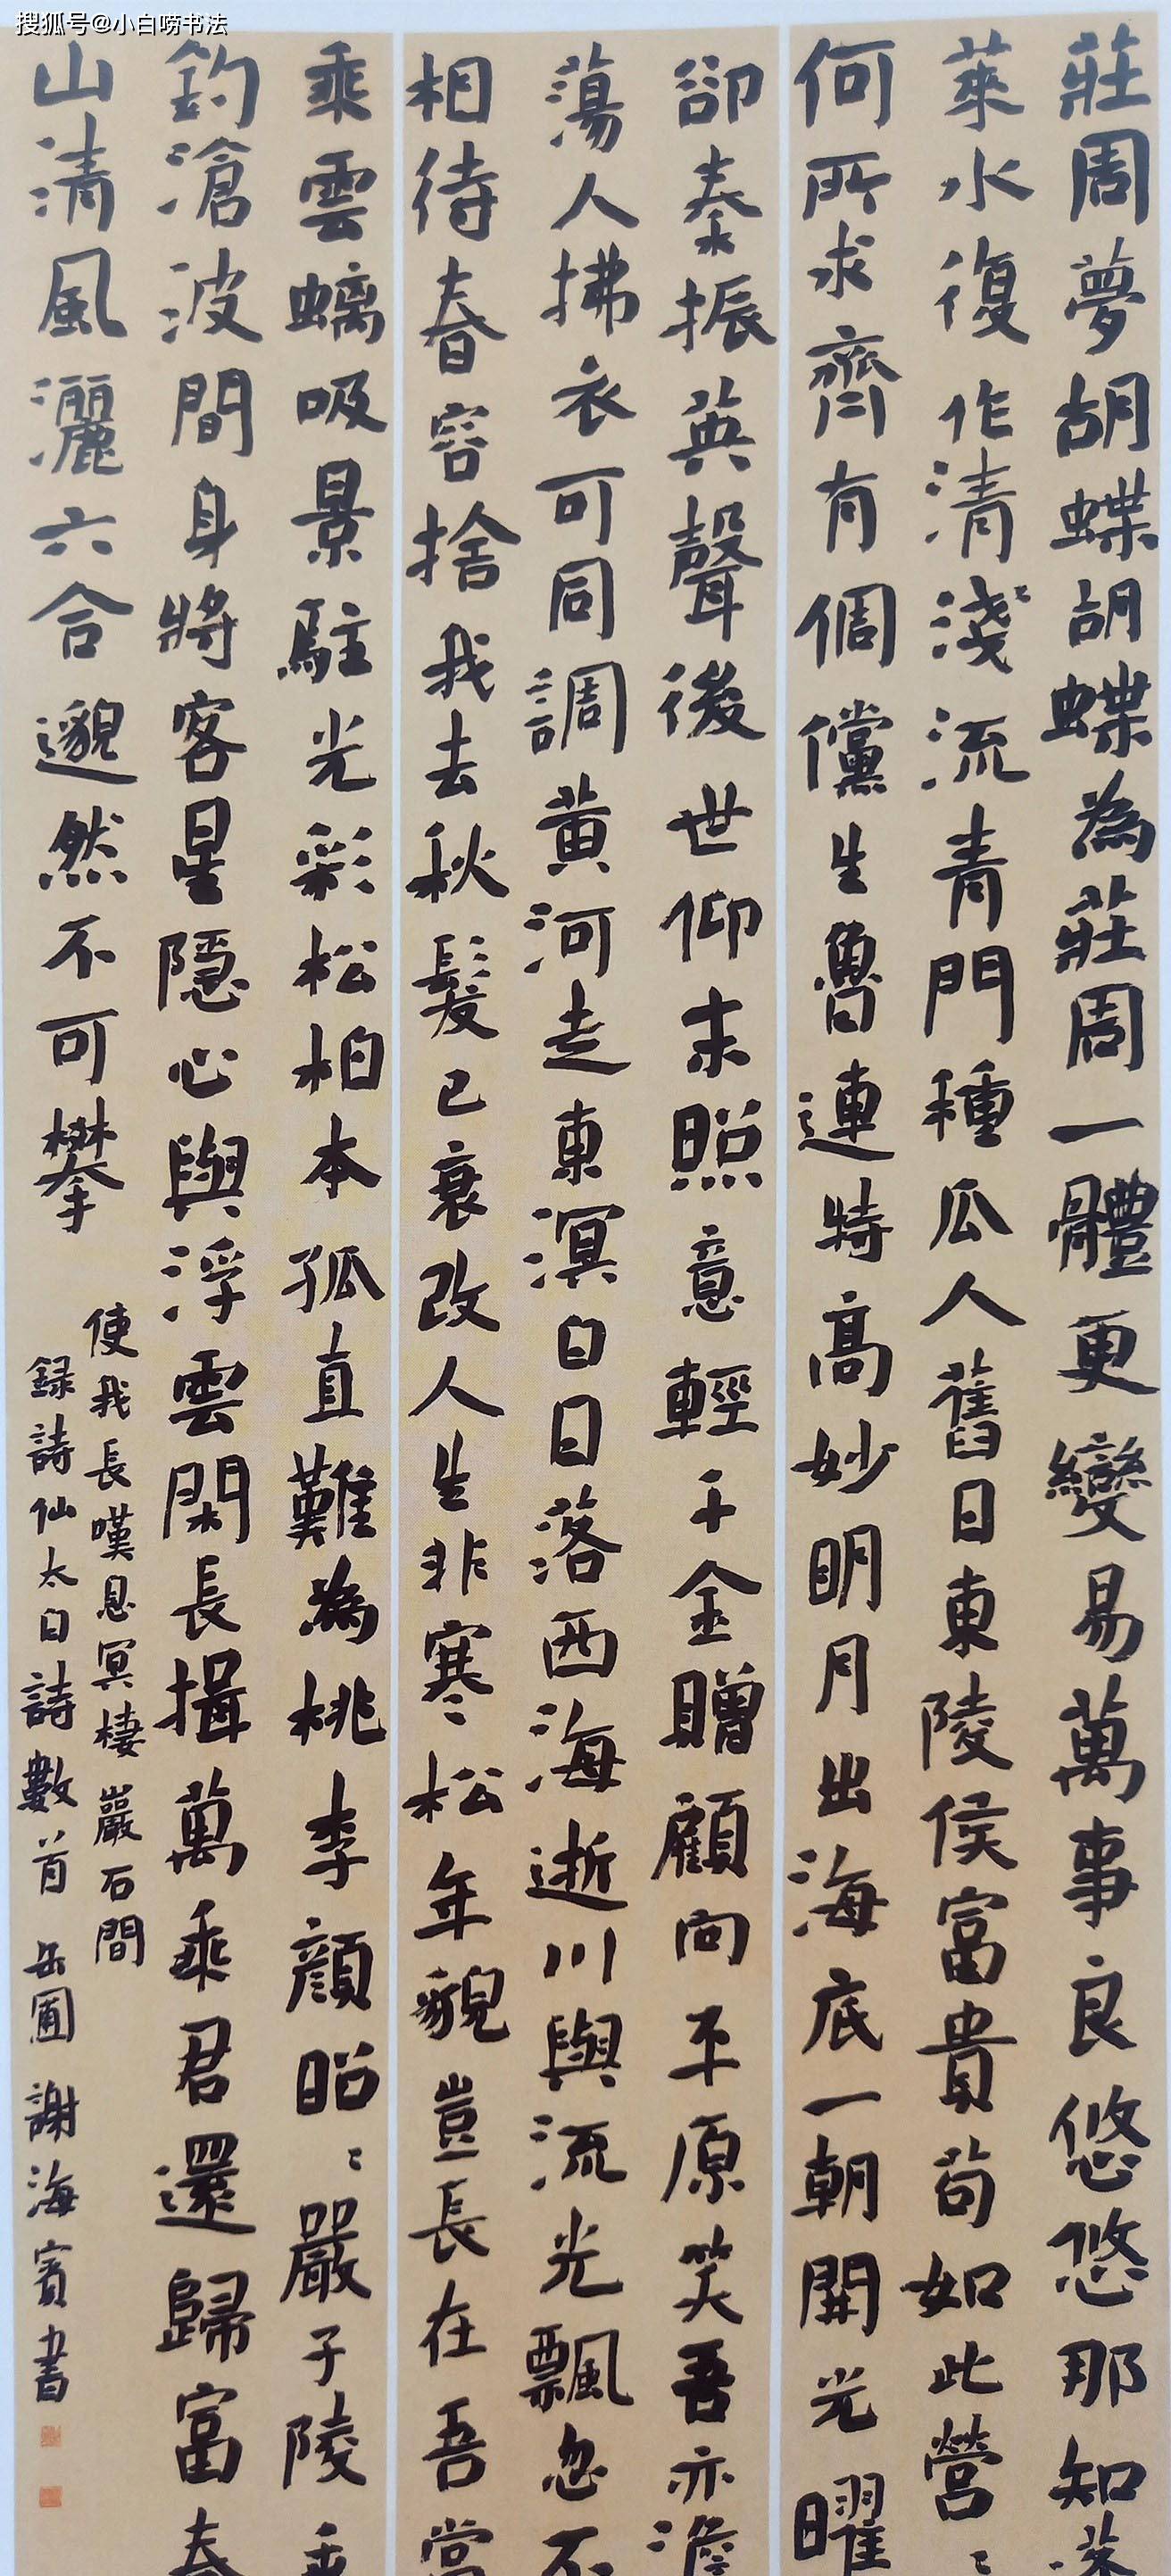 搜狐号@小白唠书法
莊周夢胡蝶胡蝶為莊周一體更變易萬事良悠悠那知蓬
萊水復作清淺淺流青門種瓜人舊日東陵侯富貴苟如此營營
何所求齊有倜儻生魯連特高妙明月出海底一朝開光曜
卻秦振英聲後世仰末照意輕千金贈顧向平原笑吾亦澹
蕩人拂衣可同調黃河走東溟白日落西海逝川與流光飄忽不
相待春容捨我去秋髮已衰改人生非寒松年貌豈長在吾當
乘雲螭吸景駐光彩松柏本孤直難為桃李顏昭昭嚴子陵垂
釣滄波間身將客星隱心與浮雲閑長揖萬乘君還歸富春
山清風灑六合邈然不可攀
使我長嘆息冥棲巖石間
錄詩仙太白詩數首 岳圃 謝海賓書